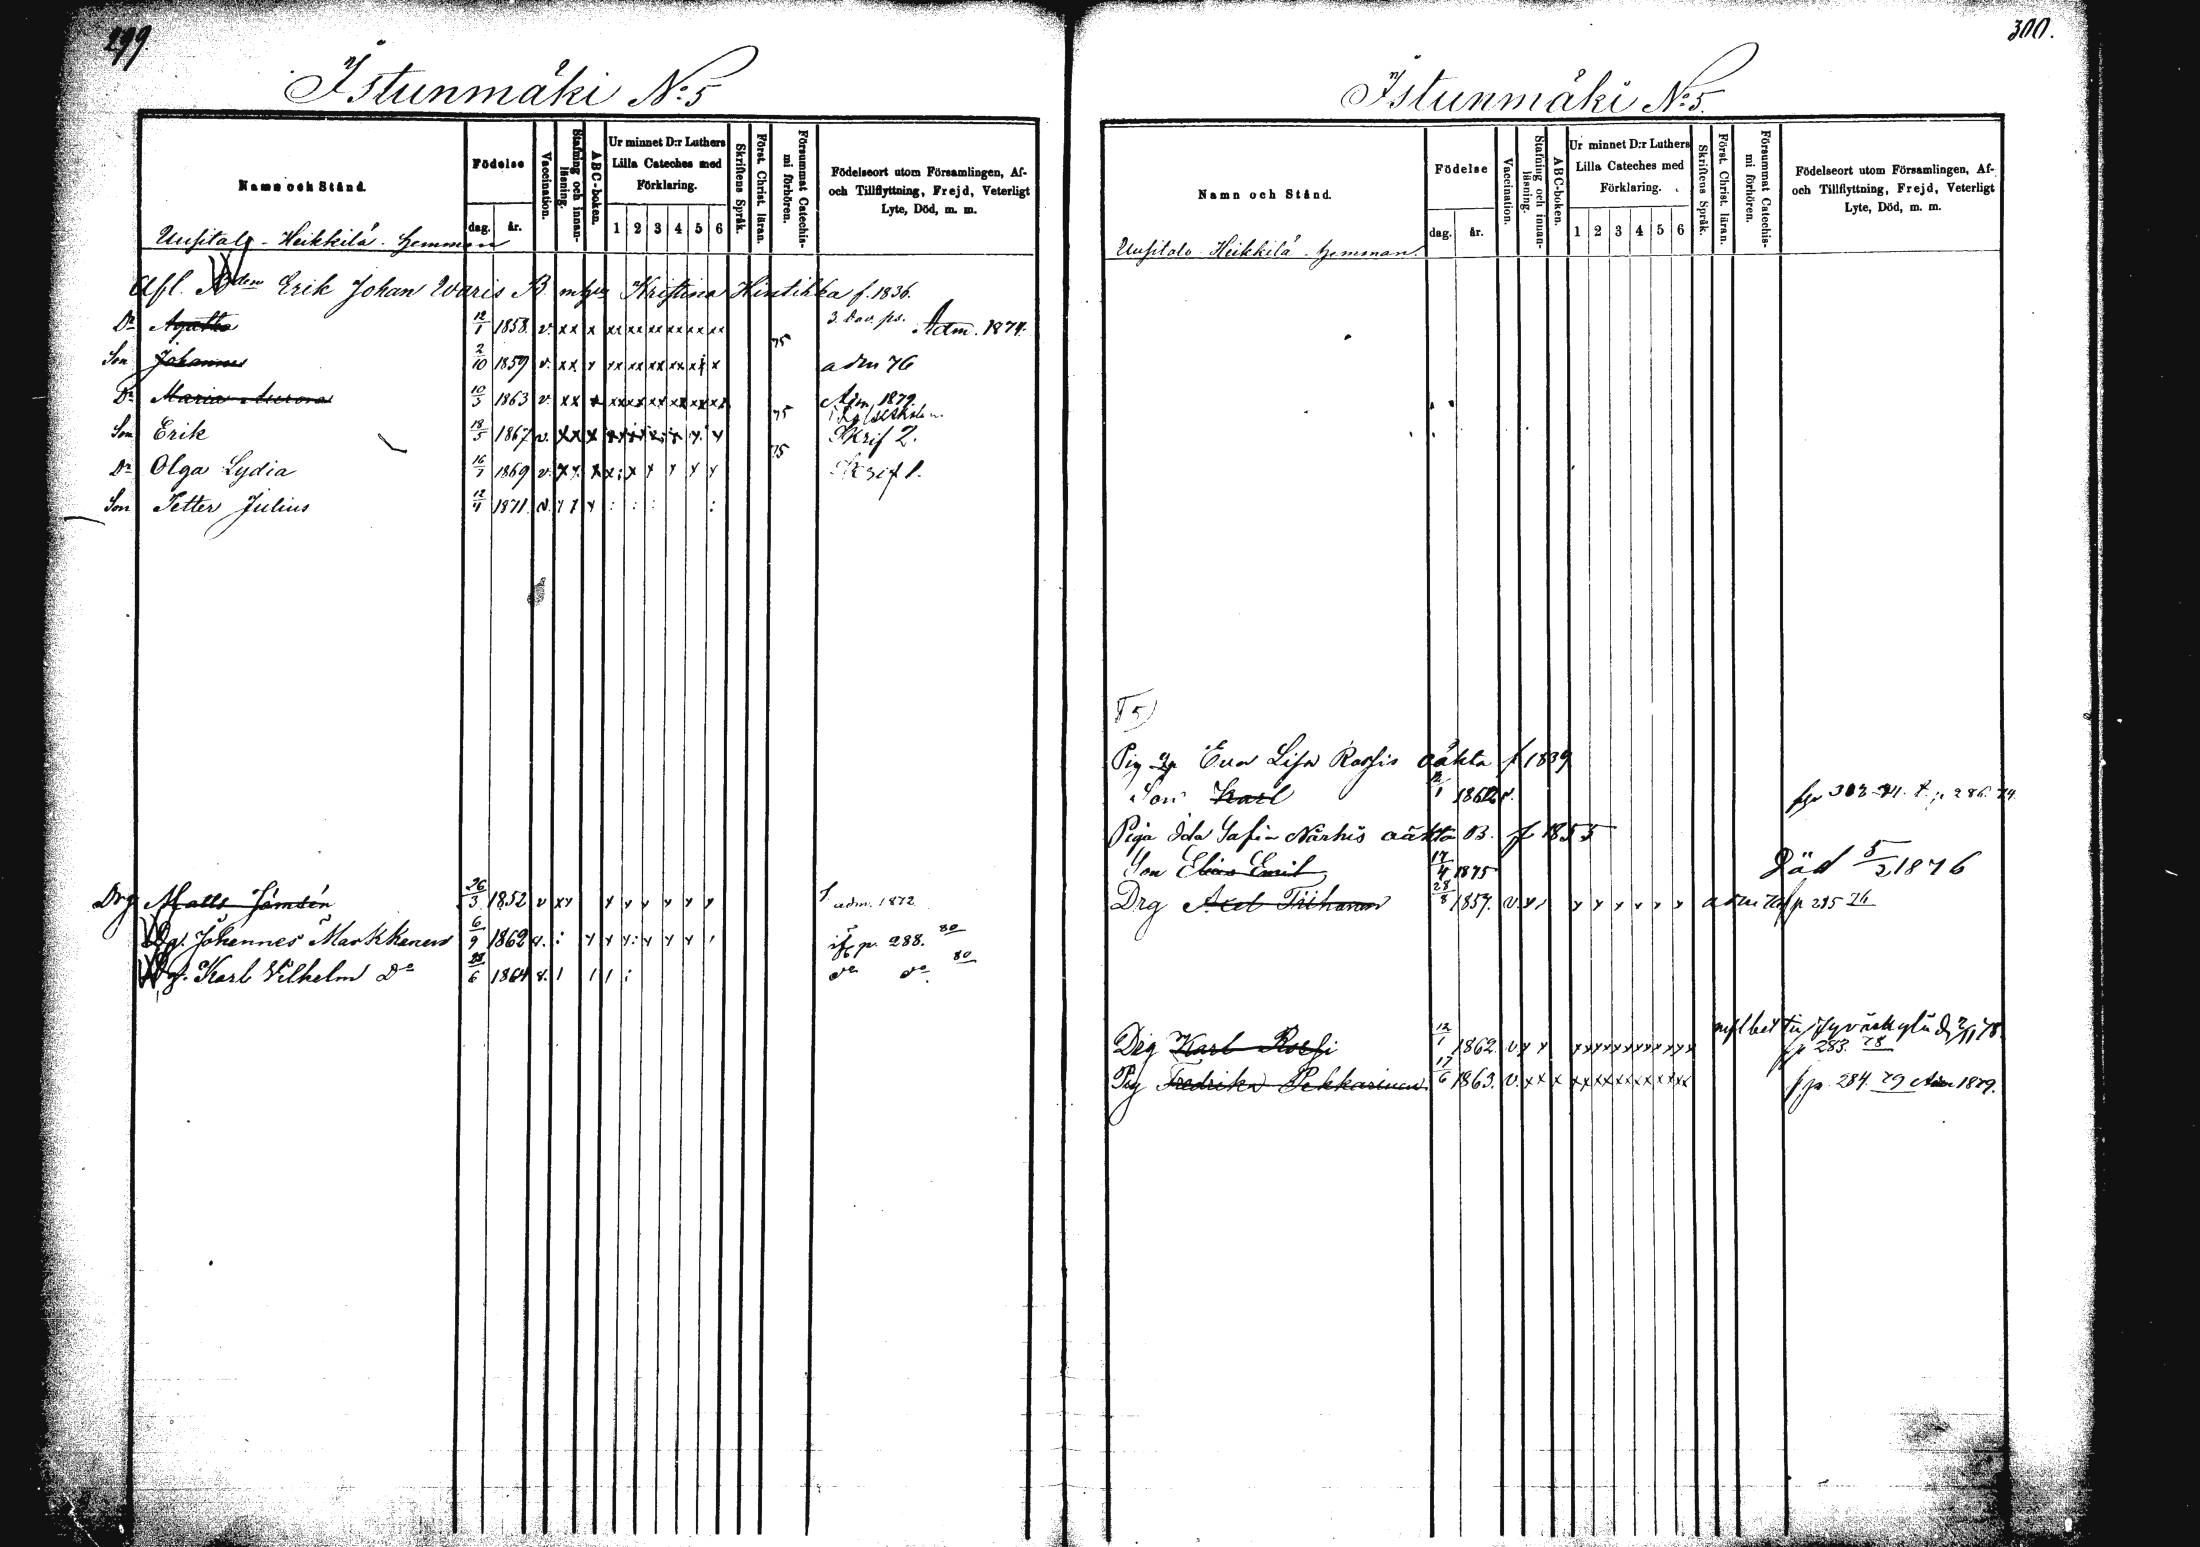 299.
Istunmäki No 5
Namn och Stånd.
Födelse
dag. år.
Vaccination.
Stafning och innan-
läsning.
ABC-boken.
Ur minnet D:r Luthers
Lilla Cateches med
Förklaring.
1 2 3 4 5 6
Skriftens Språk.
Först. Christ. läran.
Försummat Catechis-
mi förhören.
Födelseort utom Församlingen, Af-
och Tillflyttning, Frejd, Veterligt
Lyte, Död, m. m.
Uusitalo - Heikkilä - hemman
Afl. Erik Johan Waris B Kristina Hintikka f. 1836.
Dr Agatha 12/1 1858. v. xx x xx xx xx xx xx xx Adm. 1874.
75
Son Johannes 2/10 1859 v. xx adm 76
Dr Maria 10/5 1863 v. xx Adm 1879
75
Son Erik 18/5 1867 v. xx x Skrif 2.
75
Dr Olga Lydia 16/7 1869 v. Skrif 1.
Son Petter Julius 12/4 1871 v.
Drg Matts Jämsén 26/3 1852 v xy y y y y y y adm. 1872
Dg. Johannes Markkanen 6/9 1862 v. p. 288. 80
Dg. Karl Vilhelm Do 28/6 1864 v. do do 80
300.
Istunmäki No 5.
Namn och Stånd.
Födelse
dag. år.
Vaccination.
Stafning och innan-
läsning.
ABC-boken.
Ur minnet D:r Luthers
Lilla Cateches med
Förklaring.
1 2 3 4 5 6
Skriftens Språk.
Först. Christ. läran.
Försummat Catechis-
mi förhören.
Födelseort utom Församlingen, Af-
och Tillflyttning, Frejd, Veterligt
Lyte, Död, m. m.
Uusitalo - Heikkilä - hemman.
Pig Eva Lisa Rossis oäkta f 1839
Son Karl 12/1 1862 v.
Piga Ida Sofia Närhis oäkta B. f 1855
Son Elias Emil 17/4 1875 Död 5/3 1876
Drg Axel Tiihonen 28/8 1857. v. y y y y y y p 285 76
Drg Karl Rossi 12/1 1862. v. p 283. 78
Pig Fredrika Pekkarinen 17/6 1863. v. xx x f. p. 284. 79 Adm 1879.